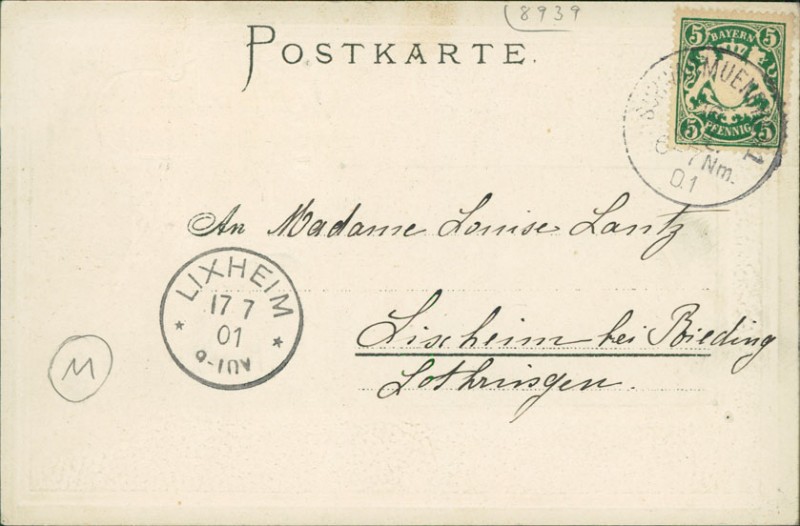 8939
POSTKARTE.
5 BAYERN 5
5 PFENNIG 5
MUEN
7 Nm.
01
An Madame Louise Lantz
LIXHEIM
17 7
01
9-10V
Lixheim bei Rieding
Lothringen.
M